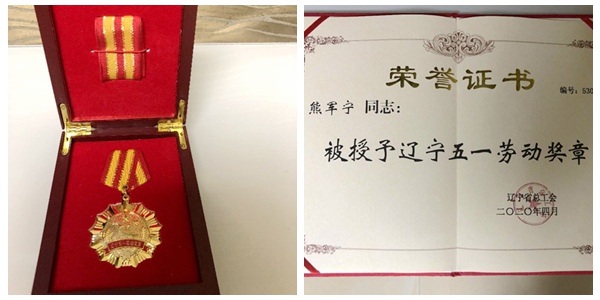 荣誉证书
编号：530
熊军宁 同志：
被授予辽宁五一劳动奖章
辽宁省总工会
二〇二〇年四月